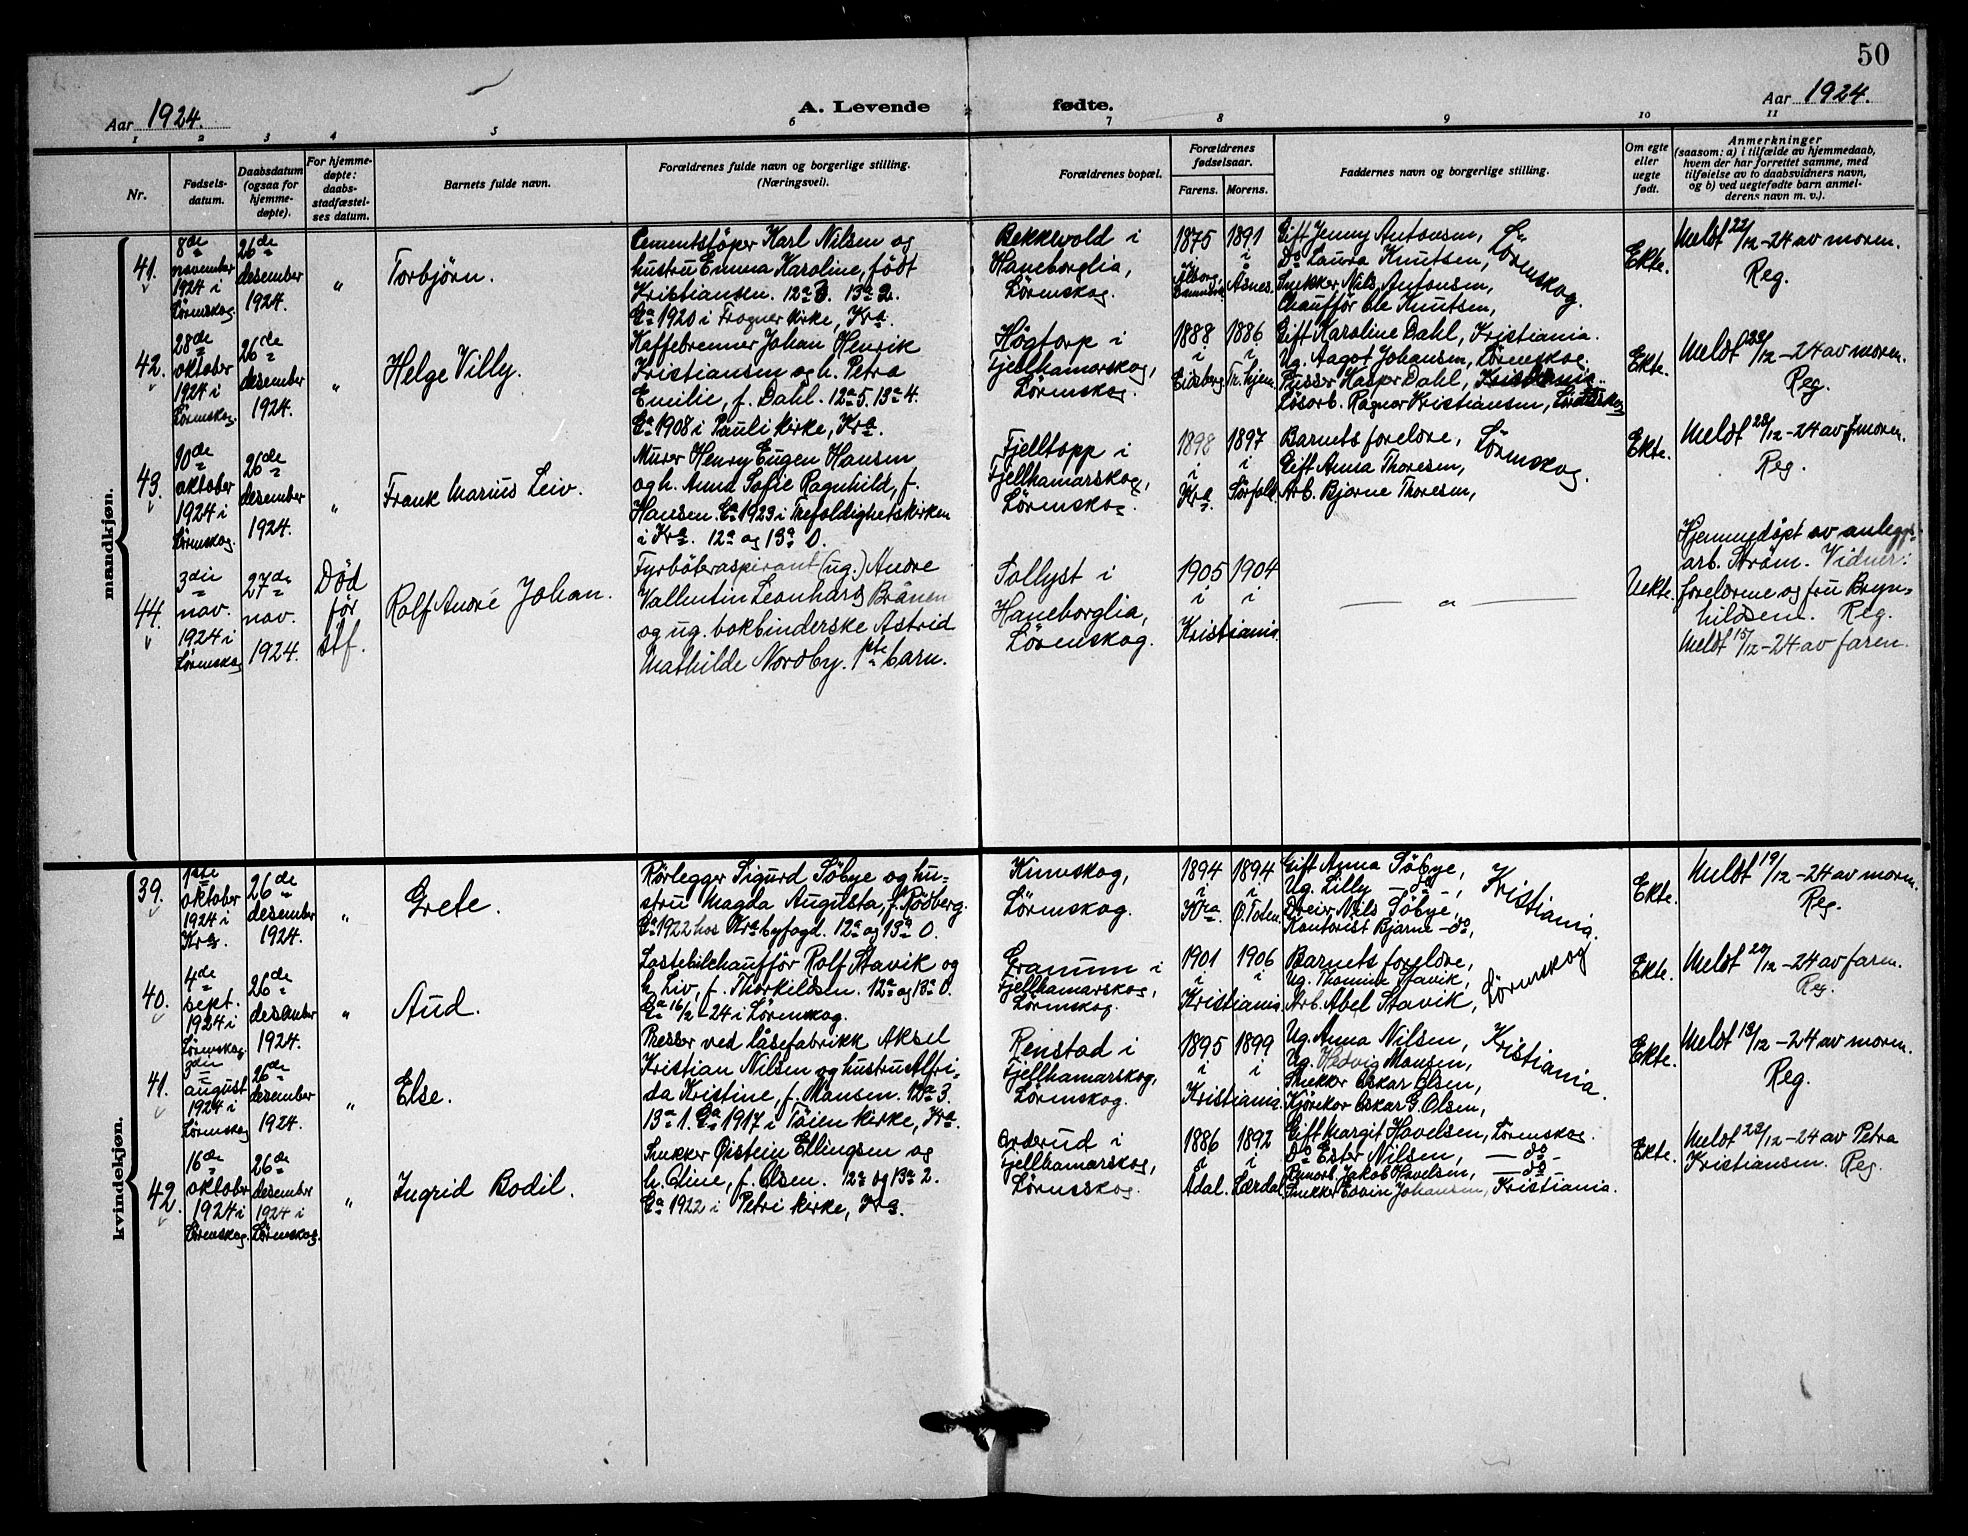 50
Aar 1924.
A. Levende fødte.
Aar 1924.
1 2 3 4 5 6 7 8 9 10 11
Nr.
Fødsels-
datum.
Daabsdatum
(ogsaa for
hjemme-
døpte).
For hjemme-
døpte:
daabs-
stadfæstel-
ses datum.
Barnets fulde navn.
Forældrenes fulde navn og borgerlige stilling.
(Næringsvei).
Forældrenes bopæl.
Forældrenes
fødselsaar.
Farens. Morens.
Faddernes navn og borgerlige stilling.
Om egte
eller
uegte
født.
Anmerkninger
(saasom: a) i tilfælde av hjemmedaab,
hvem der har forrettet samme, med
tilføielse av to daabsvidners navn,
og b) ved uegtefødte barn anmel-
derens navn m. v.).
mandkjøn.
41.
8de
november
1924 i
Lørenskog.
26de
desember
1924.
"
Torbjørn.
Cementstøper Karl Nilsen og
hustru Emma Karoline, født
Kristiansen. 12a3. 13a2.
Ga 1920 i Frogner kirke, Kra.
Bekkevold i
Haneborglia,
Lørenskog.
1875
i
Ålborg,
Danmark
1891
i
Åsnes.
Gift Jenny Antonsen,
Do Laura Knutsen,
Snekker Nils Antonsen,
Chauffør Ole Knutsen,
Lørenskog.
Ekte.
Meldt 22/12-24 av moren.
Reg.
42.
28de
oktober
1924 i
Lørenskog.
26de
desember
1924.
"
Helge Villy.
Kaffebrenner Johan Henrik
Kristiansen og h. Petra
Emilie, f. Dahl. 12a5. 13a4.
Ga 1908 i Pauli kirke, Kra.
Høgtorp i
Fjellhamarskog,
Lørenskog.
1888
i
Eidsberg
1886
i
Tr.hjem.
Gift Karoline Dahl, Kristiania.
Ug. Aagot Johansen, Lørenskog.
Pusser Kasper Dahl, Kristiania.
Løsarb. Ragnar Kristiansen, Lørenskog
Ekte.
Meldt 23/12-24 av moren.
Reg.
43.
10de
oktober
1924 i
Lørenskog.
26de
desember
1924.
"
Frank Marius Leiv.
Murer Henry Eugen Hansen
og h. Anna Sofie Ragnhild, f.
Hansen. Ga 1923 i Trefoldighetskirken
i Kra. 12a og 13a 0.
Fjelltopp i
Fjellhamarskog,
Lørenskog.
1898
i
Kra.
1897
i
Sørfold
Barnets foreldre,
Gift Anna Thoresen,
Arb. Bjarne Thoresen,
Lørenskog.
Ekte.
Meldt 23/12-24 av moren.
Reg.
44.
3die
nov.
1924 i
Lørenskog
27de
nov.
1924.
Død
før
stf.
Rolf André Johan.
Fyrbøteraspirant (ug.) Andre
Vallentin Leonhard Brånen
og ug. bokbinderske Astrid
Mathilde Nordby. 1ste barn.
Sollyst i
Haneborglia,
Lørenskog.
1905 1904
i i
Kristiania
— " —
Uekte.
Hjemmedøpt av anleggs-
arb. Strøm. Vidner:
foreldrene og fru Bryn-
hildsen. Reg.
Meldt 15/12-24 av faren.
kvindekjøn.
39.
1ste
oktober
1924 i
Kra.
26de
desember
1924.
"
Grete.
Rørlegger Sigurd Søbye og hu-
stru Magda Augusta, f. Rødberg.
Ga 1922 hos Kra byfogd. 12a og 13a 0.
Kinnskog,
Lørenskog.
1894
i
Kra
1894
i
Ø. Toten.
Gift Anna Søbye,
Ug. Lilly — do —,
Dreier Nils Søbye,
Kontorist Bjarne - do,
Kristiania.
Ekte.
Meldt 19/12-24 av moren.
Reg.
40.
4de
sept.
1924 i
Lørenskog.
26de
desember
1924.
"
Aud.
Lastebilchauffør Rolf Stavik og
h. Liv, f. Thorkildsen. 12a og 13a 0.
Ga 16/2-24 i Lørenskog.
Granum i
Fjellhamarskog,
Lørenskog.
1901 1906
i i
Kristiania
Barnets foreldre,
Ug. Thomine Stavik,
Arb. Abel Stavik,
Lørenskog
Ekte.
Meldt 20/12-24 av faren.
Reg.
41.
3die
august
1924 i
Lørenskog
26de
desember
1924.
"
Else.
Presser ved låsefabrikk Aksel
Kristian Nilsen og hustru Alfri-
da Kristine, f. Mansen. 12a3.
13a1. Ga 1917 i Tøien kirke, Kra.
Renstad i
Fjellhamarskog,
Lørenskog.
1895 1899
i i
Kristiania.
Ug. Anna Nilsen,
Ug. Hedvig Mansen,
Snekker Oskar Olsen,
Kjørekar Oskar G. Olsen,
Kristiania.
Ekte.
Meldt 13/12-24 av moren.
Reg.
42.
16de
oktober
1924 i
Lørenskog.
26de
desember
1924 i
Lørenskog.
"
Ingrid Bodil.
Snekker Øistein Ellingsen og
h. Oline, f. Olsen. 12a og 13a 2.
Ga 1922 i Petri kirke, Kra.
Orderud i
Fjellhamarskog,
Lørenskog.
1886
i
Ådal.
1892
i
Lærdal
Gift Margit Havelsen, Lørenskog.
Do Ester Nilsen, — do —
Jakob Havelsen, — do —
Snekker Edvin Johansen, Kristiania.
Ekte.
Meldt 23/12-24 av Petra
Kristiansen. Reg.